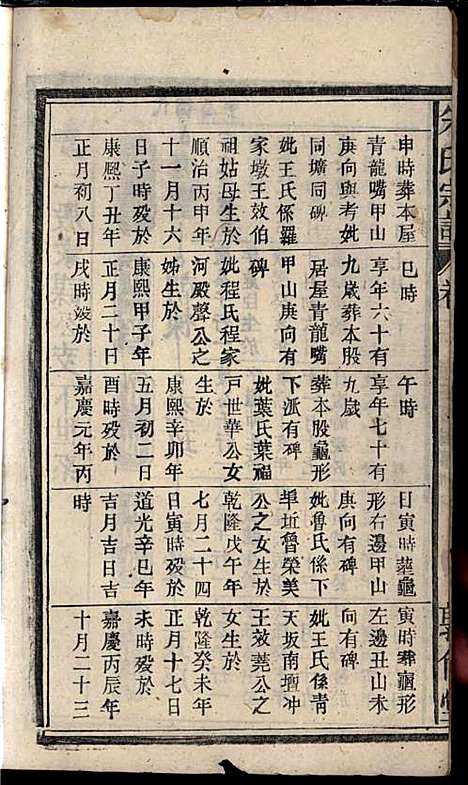 申時葬本屋
青龍嘴甲山
庚向與考妣
同壙同碑
妣王氏係羅
家墩王效伯
祖姑母生於
順治丙申年
十一月十六
日子時殁於
康熙丁丑年
正月初八日
巳時
享年六十有
九歲葬本股
居屋青龍嘴
甲山庚向有
碑
妣程氏程家
河殿聲公之
姊生於
康熙甲子年
正月二十日
戌時殁於
午時
享年七十有
九歲
葬本股龜形
下派有碑
妣葉氏葉福
戸世華公女
生於
康熙辛卯年
五月初二日
酉時殁於
嘉慶元年丙
日寅時葬龜
形右邊甲山
庚向有碑
妣魯氏係下
阜坵魯榮美
公之女生於
乾隆戊午年
七月二十四
日寅時殁於
道光辛巳年
吉月吉日吉
時
寅時葬龜形
左邊丑山未
向有碑
妣王氏係青
天坂南壇冲
王效蕘公之
女生於
乾隆癸未年
正月十七日
未時殁於
嘉慶丙辰年
十月二十三
氏宗譜 卷